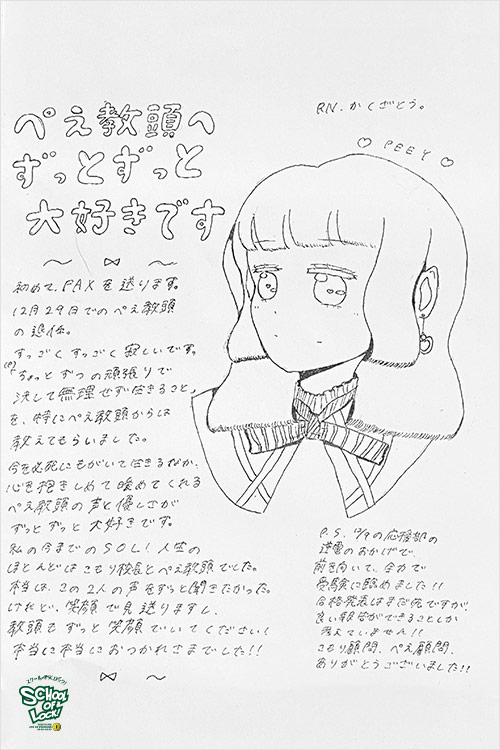 RN. かくざとう。
ぺえ教頭へ
ずっとずっと
大好きです
♡ PEEY ♡
初めて、FAXを送ります。
12月29日でのぺえ教頭
の退任。
すっごくすっごく寂しいです。
ちょっとずつの頑張りで
決して無理せず生きること
を、特にぺえ教頭からは
教えてもらいました。
今を必死にもがいて生きるなか、
心を抱きしめて暖めてくれる
ぺえ教頭の声と優しさが
ずっとずっと大好きです。
私の今までのSOL! 人生の
ほとんどはこもり校長とぺえ教頭でした。
本当は、この2人の声をずっと聞きたかった。
けれど、笑顔で見送りますし、
教頭もずっと笑顔でいてください!
本当に本当におつかれさまでした!!
P.S. 12/9の応援部の
逆電のおかげで、
前を向いて、全力で
受験に臨めました!!
合格発表はまだ先ですが、
良い報告ができることしか
考えていません!!
こもり顧問、ぺえ顧問、
ありがとうございました!!
SCHOOL
OF
LOCK!